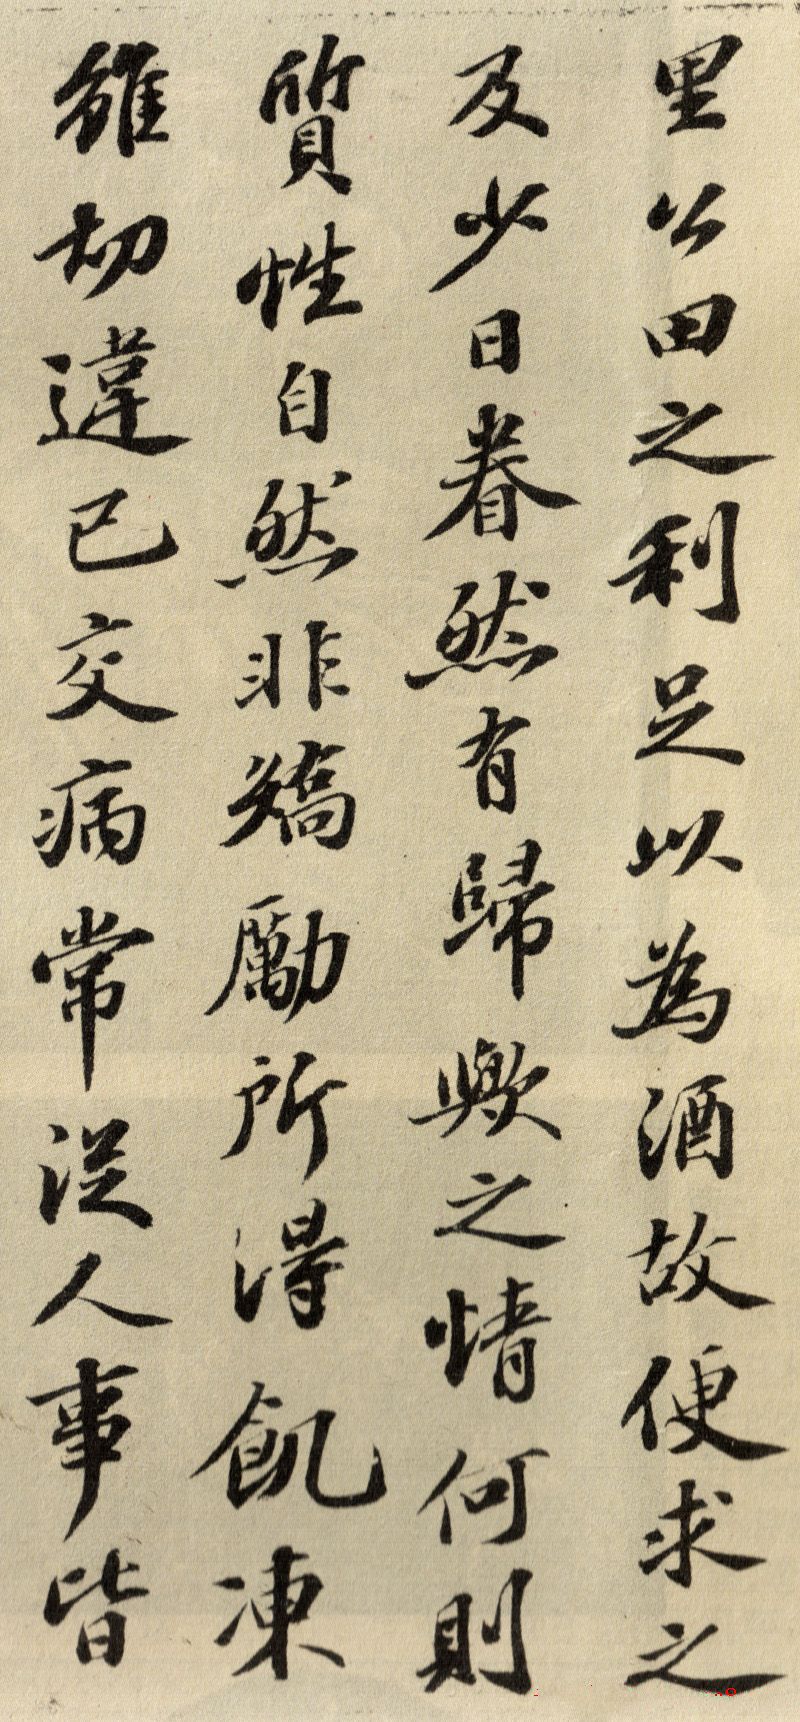 里公田之利足以為酒故便求之
及少日眷然有歸歟之情何則
質性自然非矯勵所得飢凍
雖切違已交病常從人事皆